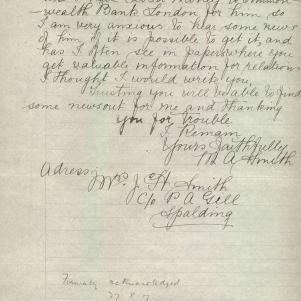 wealth Bank London for him so
I am very anxious to hear some news
of him if it is possible to get it, and
has I often see in papers where you
get valuable information for relations
I thought I would write you
Trusting you will be able to find
some news out for me and thanking
you for trouble
I Remain
Yours Faithfully
A Smith
Adress;
Mrs. J. H. Smith
C/o P A Gill
Spalding
Formally acknowledged